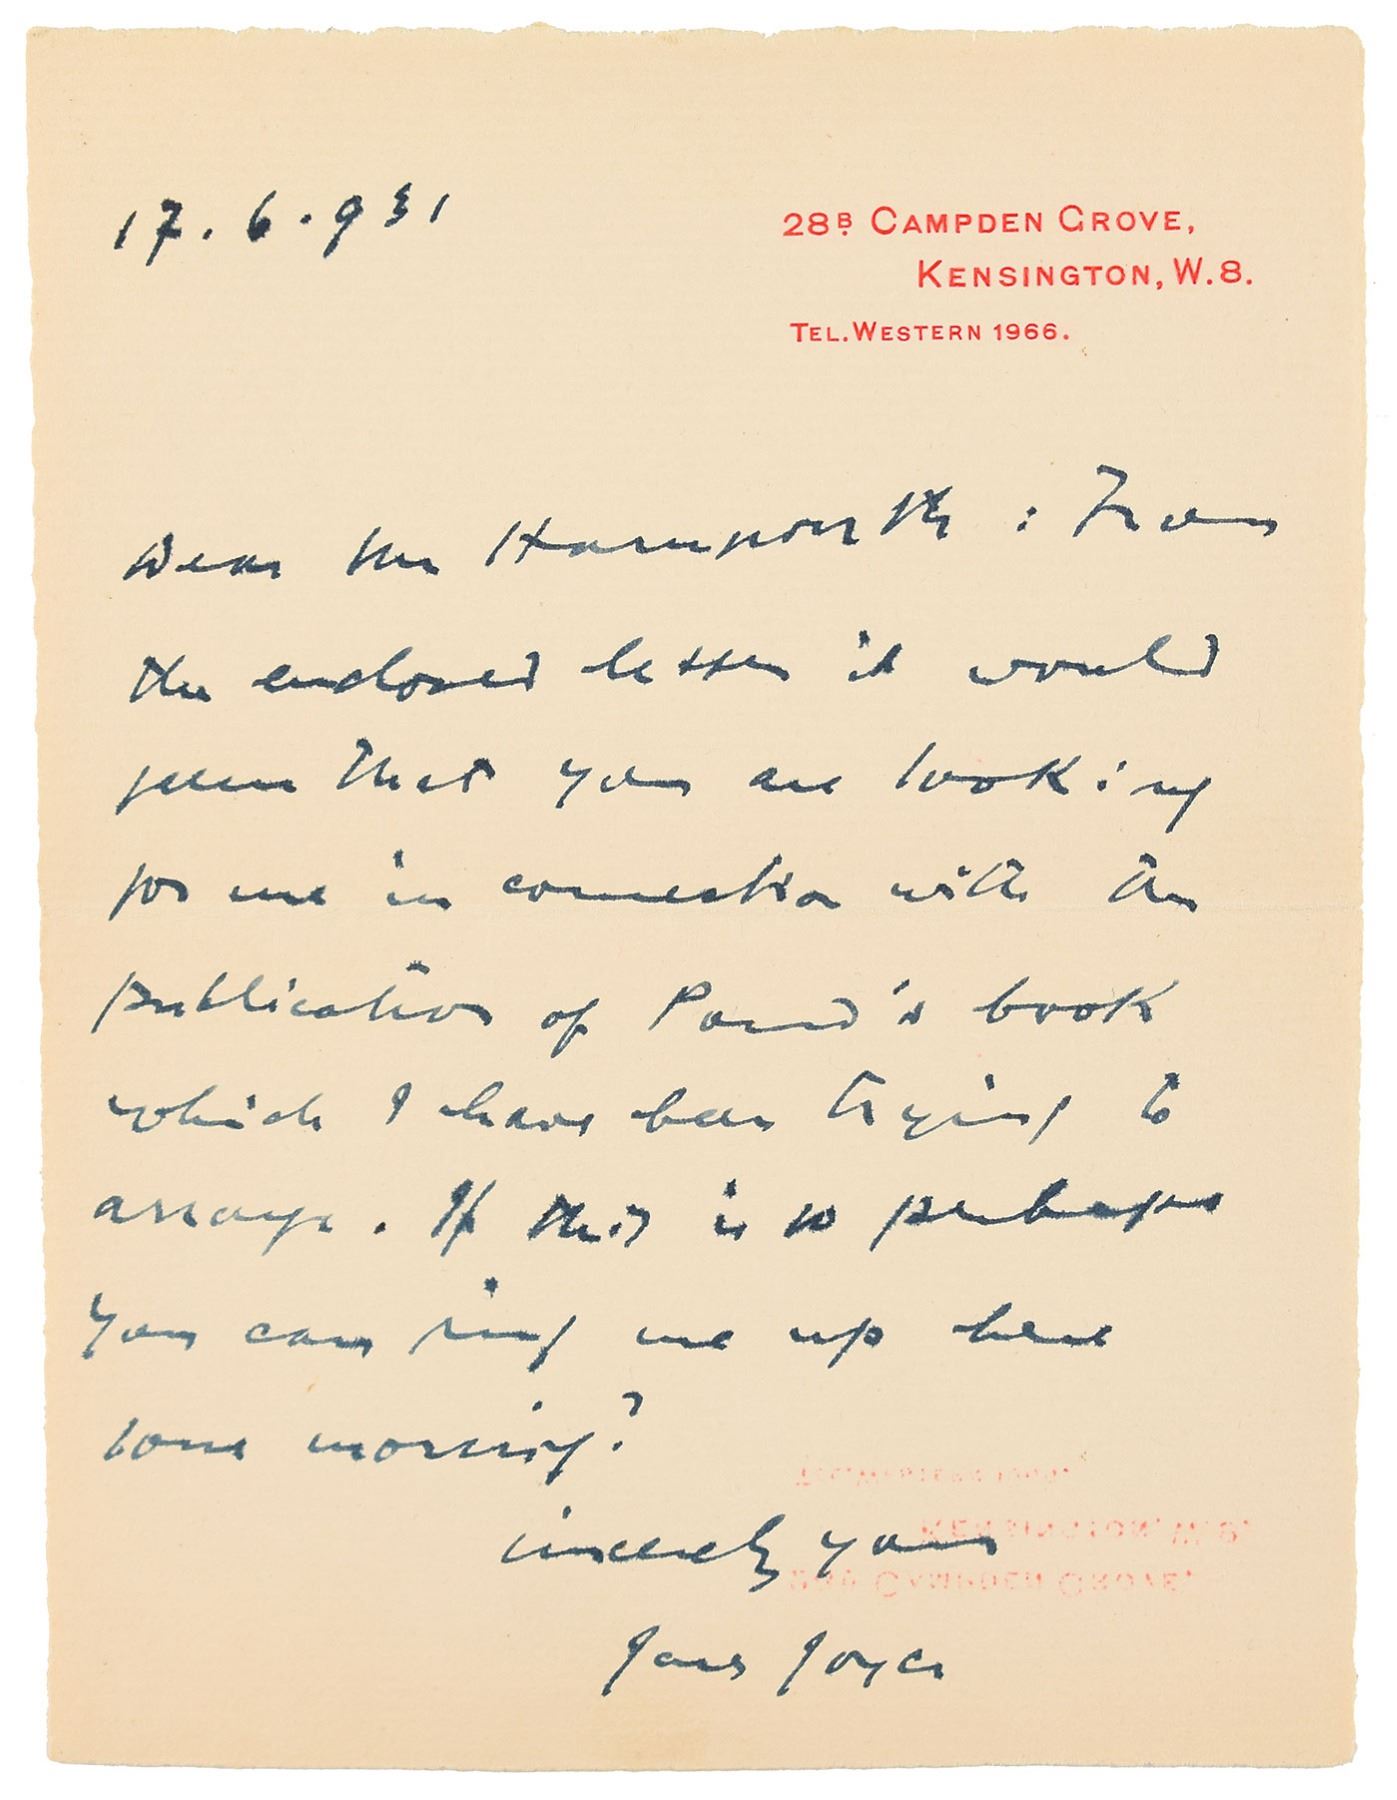 17.6.931
28B. CAMPDEN GROVE,
KENSINGTON, W.8.
TEL. WESTERN 1966.
Dear Mr Harmsworth: From
the enclosed letter it would
seem that you are looking
for me in connection with the
publication of Pound's book
which I have been trying to
arrange. If this is so perhaps
you can ring me up here
some morning?
sincerely yours
James Joyce
TEL. WESTERN 1966.
KENSINGTON, W.8.
28B. CAMPDEN GROVE,